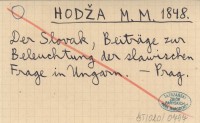 HODŽA M. M. 1848.
Der Slovak, Beiträge zur
Beleuchtung der slavischen
Frage in Ungarn. — Prag.